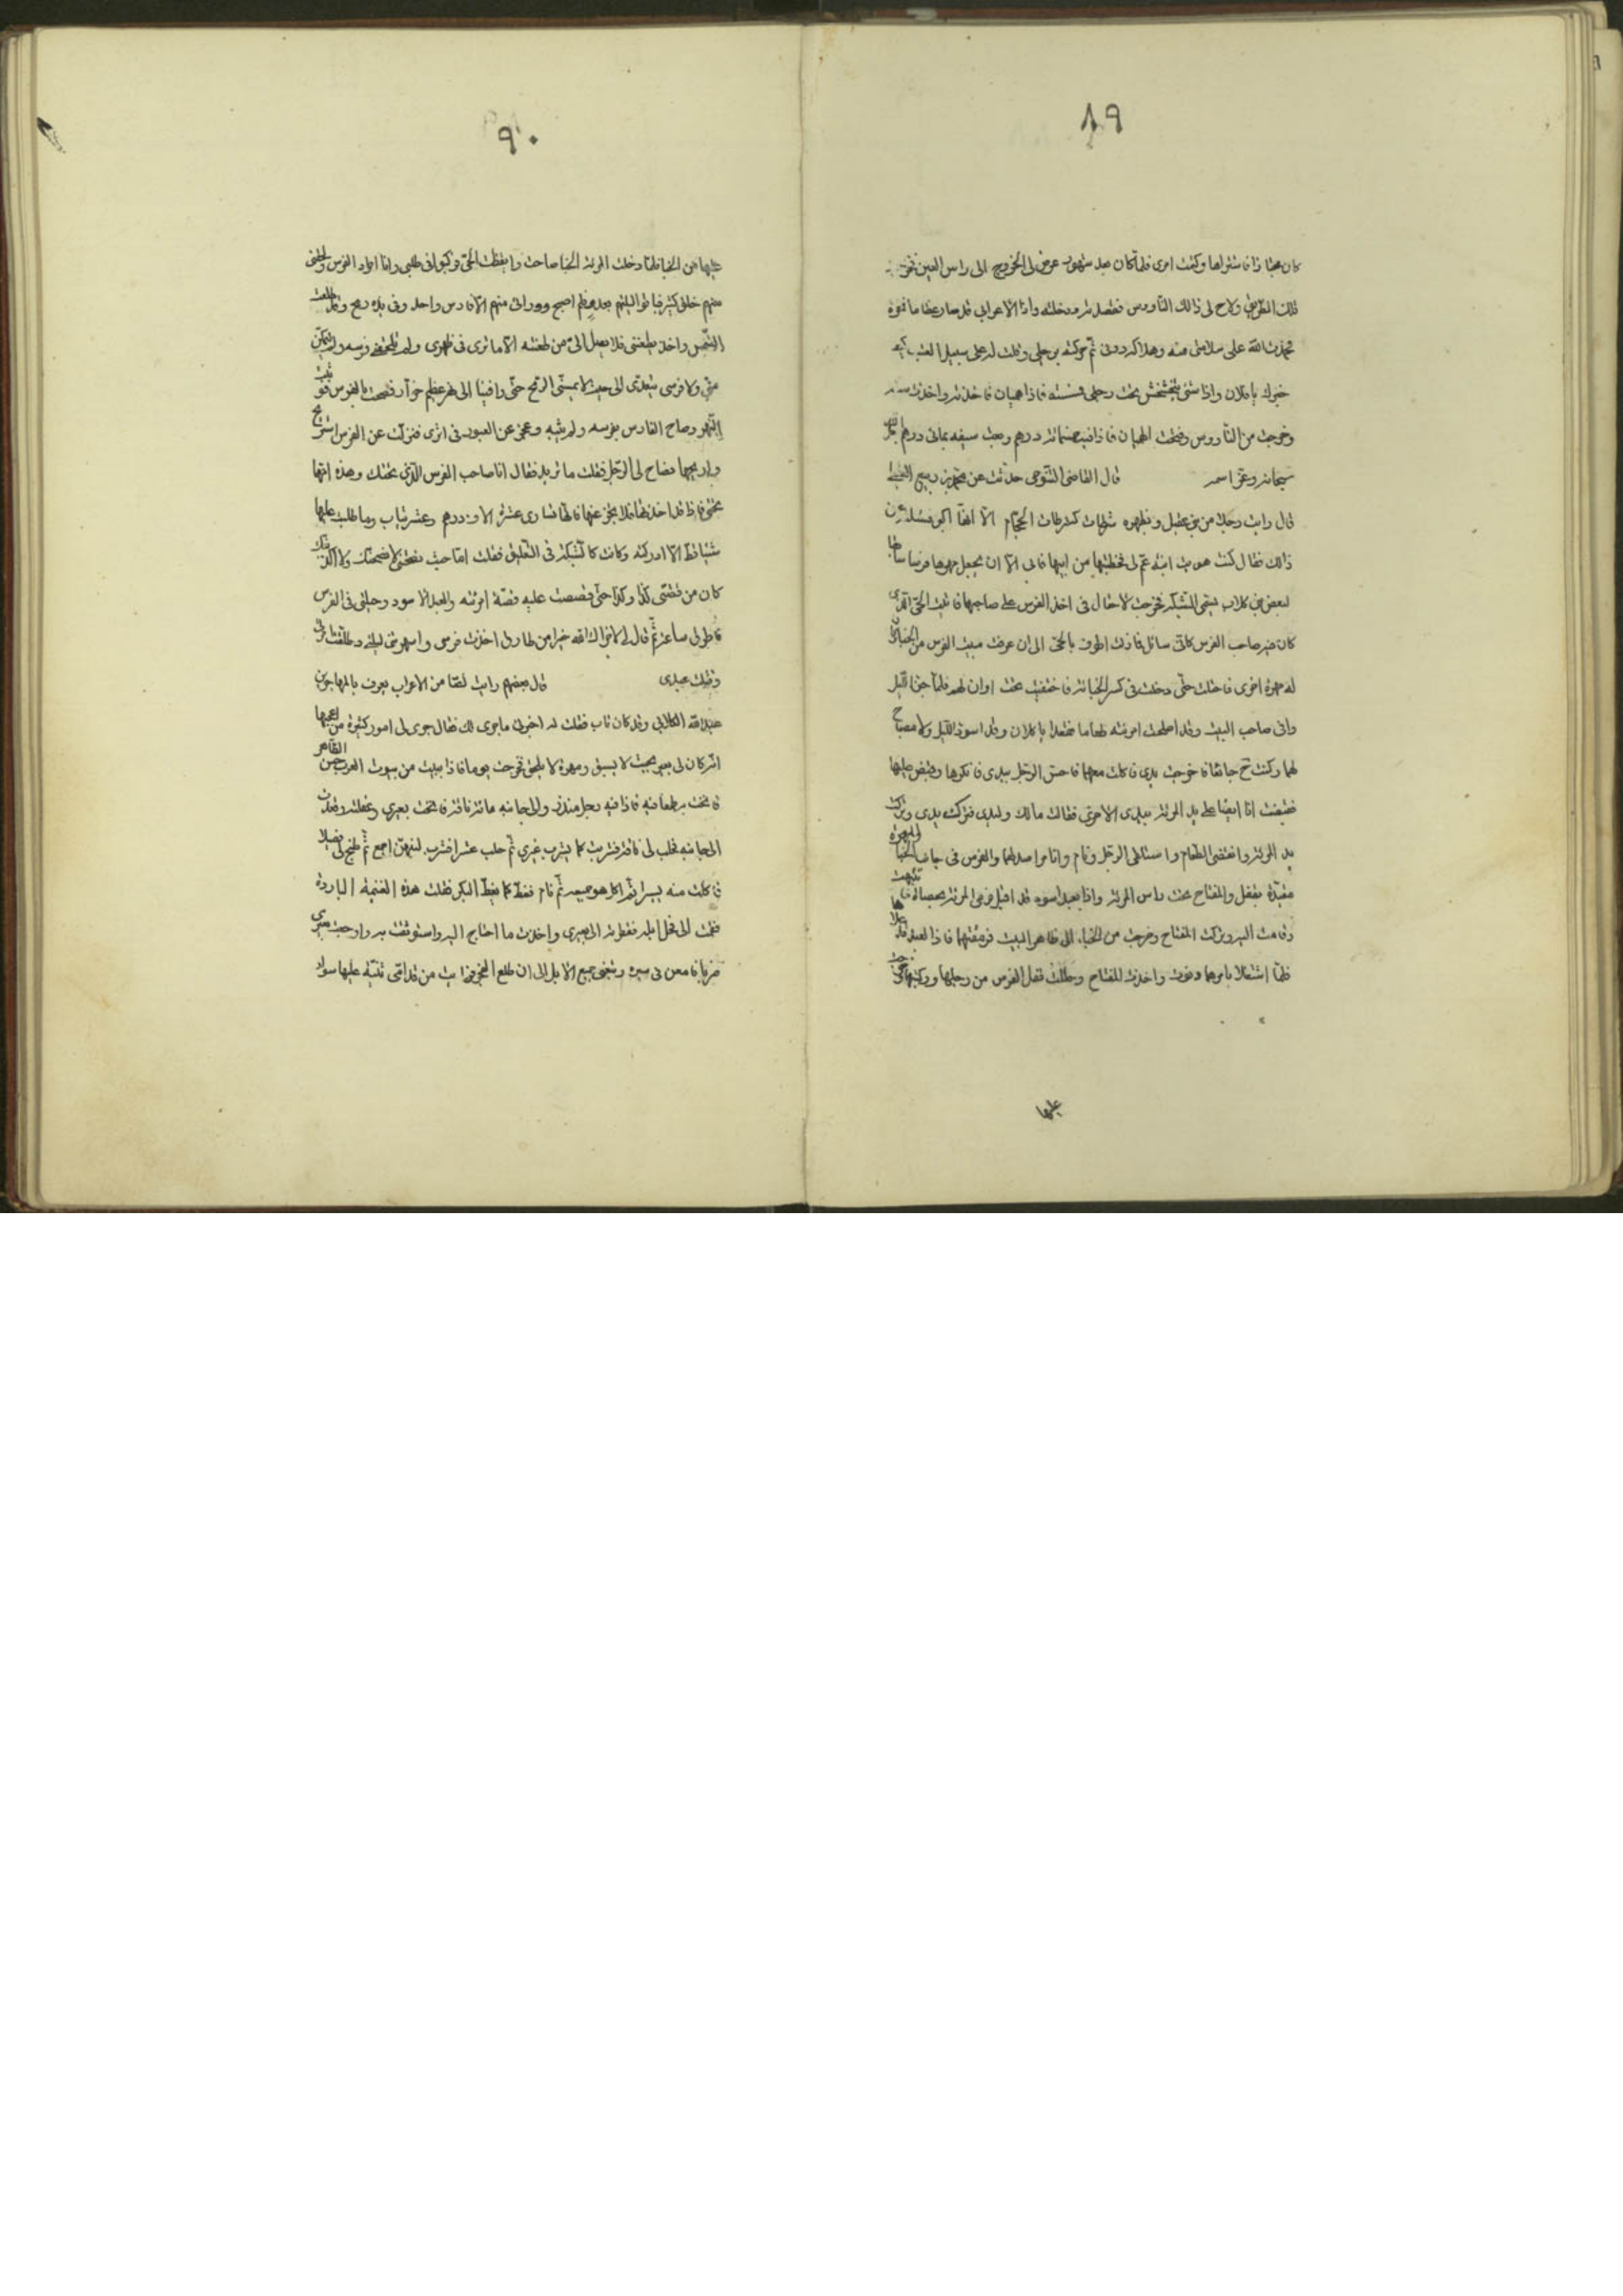 ٨٩
كان مجتازا فاشتراها وكتمت امرى فلما كان بعد شهور عرض لى الخروج الى راس العين فى
تلك الطريق ولاح لى ذالك الناووس فقصدته ودخلته واذا الاعرابى قد صار عظاما نخرة
فحمدت الله على سلامتى منه وهلاكه دونى ثم حركته برجلى وقلت له على سبيل العتب كيف
خبرك يا فلان واذا شئ يتخشخش تحت رجلى ففتشته فاذا هميان فاخذته واخذت سيفه
وخرجت من الناووس وفتحت الهميان فاذا فيه خمسمائة درهم وبعت سيفه بمائتى درهم
سبحانه وعز اسمه قال القاضى التنوخى حدثت عن محمد بن بديع العقيلى
قال رايت رجلا من بنى عقيل وبظهره شرطات كشرطات الحجام الا انها اكبر فسئلته عن
ذالك فقال كنت هويت ابنة عم لى فخطبتها من ابيها فابى الا ان يجعل مهرها فرسا سابقا
لبعض بنى كلاب يسمى الشبكة فخرجت لاحتال فى اخذ الفرس على صاحبها فاتيت الحى الذى
كان فيه صاحب الفرس كانى سائل فما زلت اطوف بالحى الى ان عرفت مبيت الفرس من الخباء وكان
له مهرة اخرى فاحتلت حتى دخلت فى كسر الخباء فاختفيت تحت اوان لهم فلما جن الليل
واتى صاحب البيت وقد اصلحت امرئته طعاما فقعدا ياكلان وقد اسود الليل ولا مصباح
لهما وكنت جائعا فاخرجت يدى فاكلت معهما فاحس الرجل بيدى فانكرها وقبض عليها
فقبضت انا ايضا على يد المرئة بيدى الاخرى فقالت مالك وليدى فترك يدى وتركت
يد المرئة وانقضى الطعام واستلقى الرجل ونام وانا مراصد لهما والفرس فى جانب الخباء والمهرة
مقيدة بقفل والمفتاح تحت راس المرئة واذا بعبد اسود قد اقبل فرمى المرئة بحصاة فانتبهت
وقامت اليه وتركت المفتاح وخرجت من الخباء الى ظاهر البيت فرمقتهما فاذا العبد قد علاها
فلما اشتغلا بامرهما دفوت واخذت المفتاح وحللت قفل الفرس من رجلها وركبتها وخرجت
عليها
٩٠
عليها من الخباء فلما دخلت المرئة الخباء صاحت وايقظت الحى وركبوا فى طلبى وانا اكد الفرس ولحقنى
منهم خلق كثير فما زالوا يتبعونى اصبح وورائى منهم الا فارس واحد وفى يده رمح وقد طلعت
الشمس واخذ يطعننى فلا يصل الى من طعنته الا ما ترى فى ظهرى ولم تلحقنى فرسه ولا يتمكن
منى ولا فرسى يتعدى الى حيث لا يمسنى الرمح حتى وافينا الى نهر عظيم خرار فصحت بالفرس فوثبت
النهر وصاح الفارس بفرسه ولم يثبه وعجز عن العبور فى اثرى فنزلت عن الفرس لاستريح
واريحها فصاح لى الرجل فقلت ما تريد فقال انا صاحب الفرس الذى تحتك وهذه ابنتها
تحتى فاذا قد اخذتها فلا تخدع عنها فانها تساوى عشرة الاف درهم وعشر ثياب وما طلبت عليها
شيئا قط الا ادركته وكانت كالشبكة فى التعليق فقلت اما حيث نصحتنى لانصحنك ولا اكذبنك
كان من قصتى كذا وكذا حتى قصصت عليه قصة امرئته والعبد الاسود وحيلتى فى الفرس
فاطرق ساعة ثم قال لى لا جزاك الله خيرا من طارق اخذت فرسى واسهرتنى ليلى وطلقت امرئتى
وقتلت عبدى قال بعضهم رايت لصا من الاعراب يعرف بالمهاجر بن
عبد الله الكلابى وقد كان تاب فقلت له اخبرنى ما جرى لك فقال جرى لى امور كثيرة من اعجبها
انه كان لى بعير نجيب لا يسبق ومهرة لا تلحق فخرجت يوما فاذا ببيت من بيوت العرب حسن الظاهر
فانخت بعيرى
الى جانبه فحلب لى ناقة فشربت كما يشرب غيرى ثم حلب عشرا فشرب لبنهن اجمع ثم طبخ لى فصيلا
فاكلت منه يسيرا ثم اكل هو جميعه ثم نام فغط كما يغط البكر فقلت هذه الغنيمة الباردة
فقمت الى فحل ابله فقطرته الى بعيرى واخذت ما احتاج اليه واستوثقت به واوجعت بعيرى
ضربا فامعن فى سيره وتبعنى جميع الابل الى ان طلع الفجر فرايت من قدامى ثنية عليها سواد